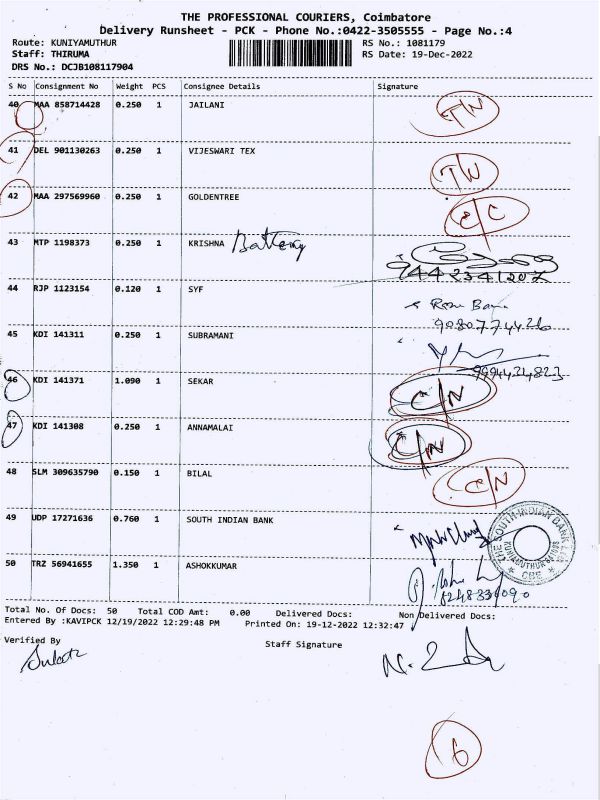 THE PROFESSIONAL COURIERS, Coimbatore
Delivery Runsheet - PCK - Phone No.:0422-3505555 - Page No.:4
Route: KUNIYAMUTHUR RS No.: 1081179
Staff: THIRUMA RS Date: 19-Dec-2022
DRS No.: DCJB108117904
S No Consignment No Weight PCS Consignee Details Signature
40 MAA 858714428 0.250 1 JAILANI T/N
41 DEL 901130263 0.250 1 VIJESWARI TEX T/N
42 MAA 297569960 0.250 1 GOLDENTREE
43 MTP 1198373 0.250 1 KRISHNA Battery
9442341207
44 RJP 1123154 0.120 1 SYF
9080774426
45 KDI 141311 0.250 1 SUBRAMANI
9994424823
46 KDI 141371 1.090 1 SEKAR C/N
47 KDI 141308 0.250 1 ANNAMALAI C/N
48 SLM 309635790 0.150 1 BILAL C/N
49 UDP 17271636 0.760 1 SOUTH INDIAN BANK
THE SOUTH INDIAN BANK LTD
CBE
50 TRZ 56941655 1.350 1 ASHOKKUMAR
Total No. Of Docs: 50 Total COD Amt: 0.00 Delivered Docs: Non Delivered Docs:
Entered By :KAVIPCK 12/19/2022 12:29:48 PM Printed On: 19-12-2022 12:32:47
Verified By Staff Signature
6